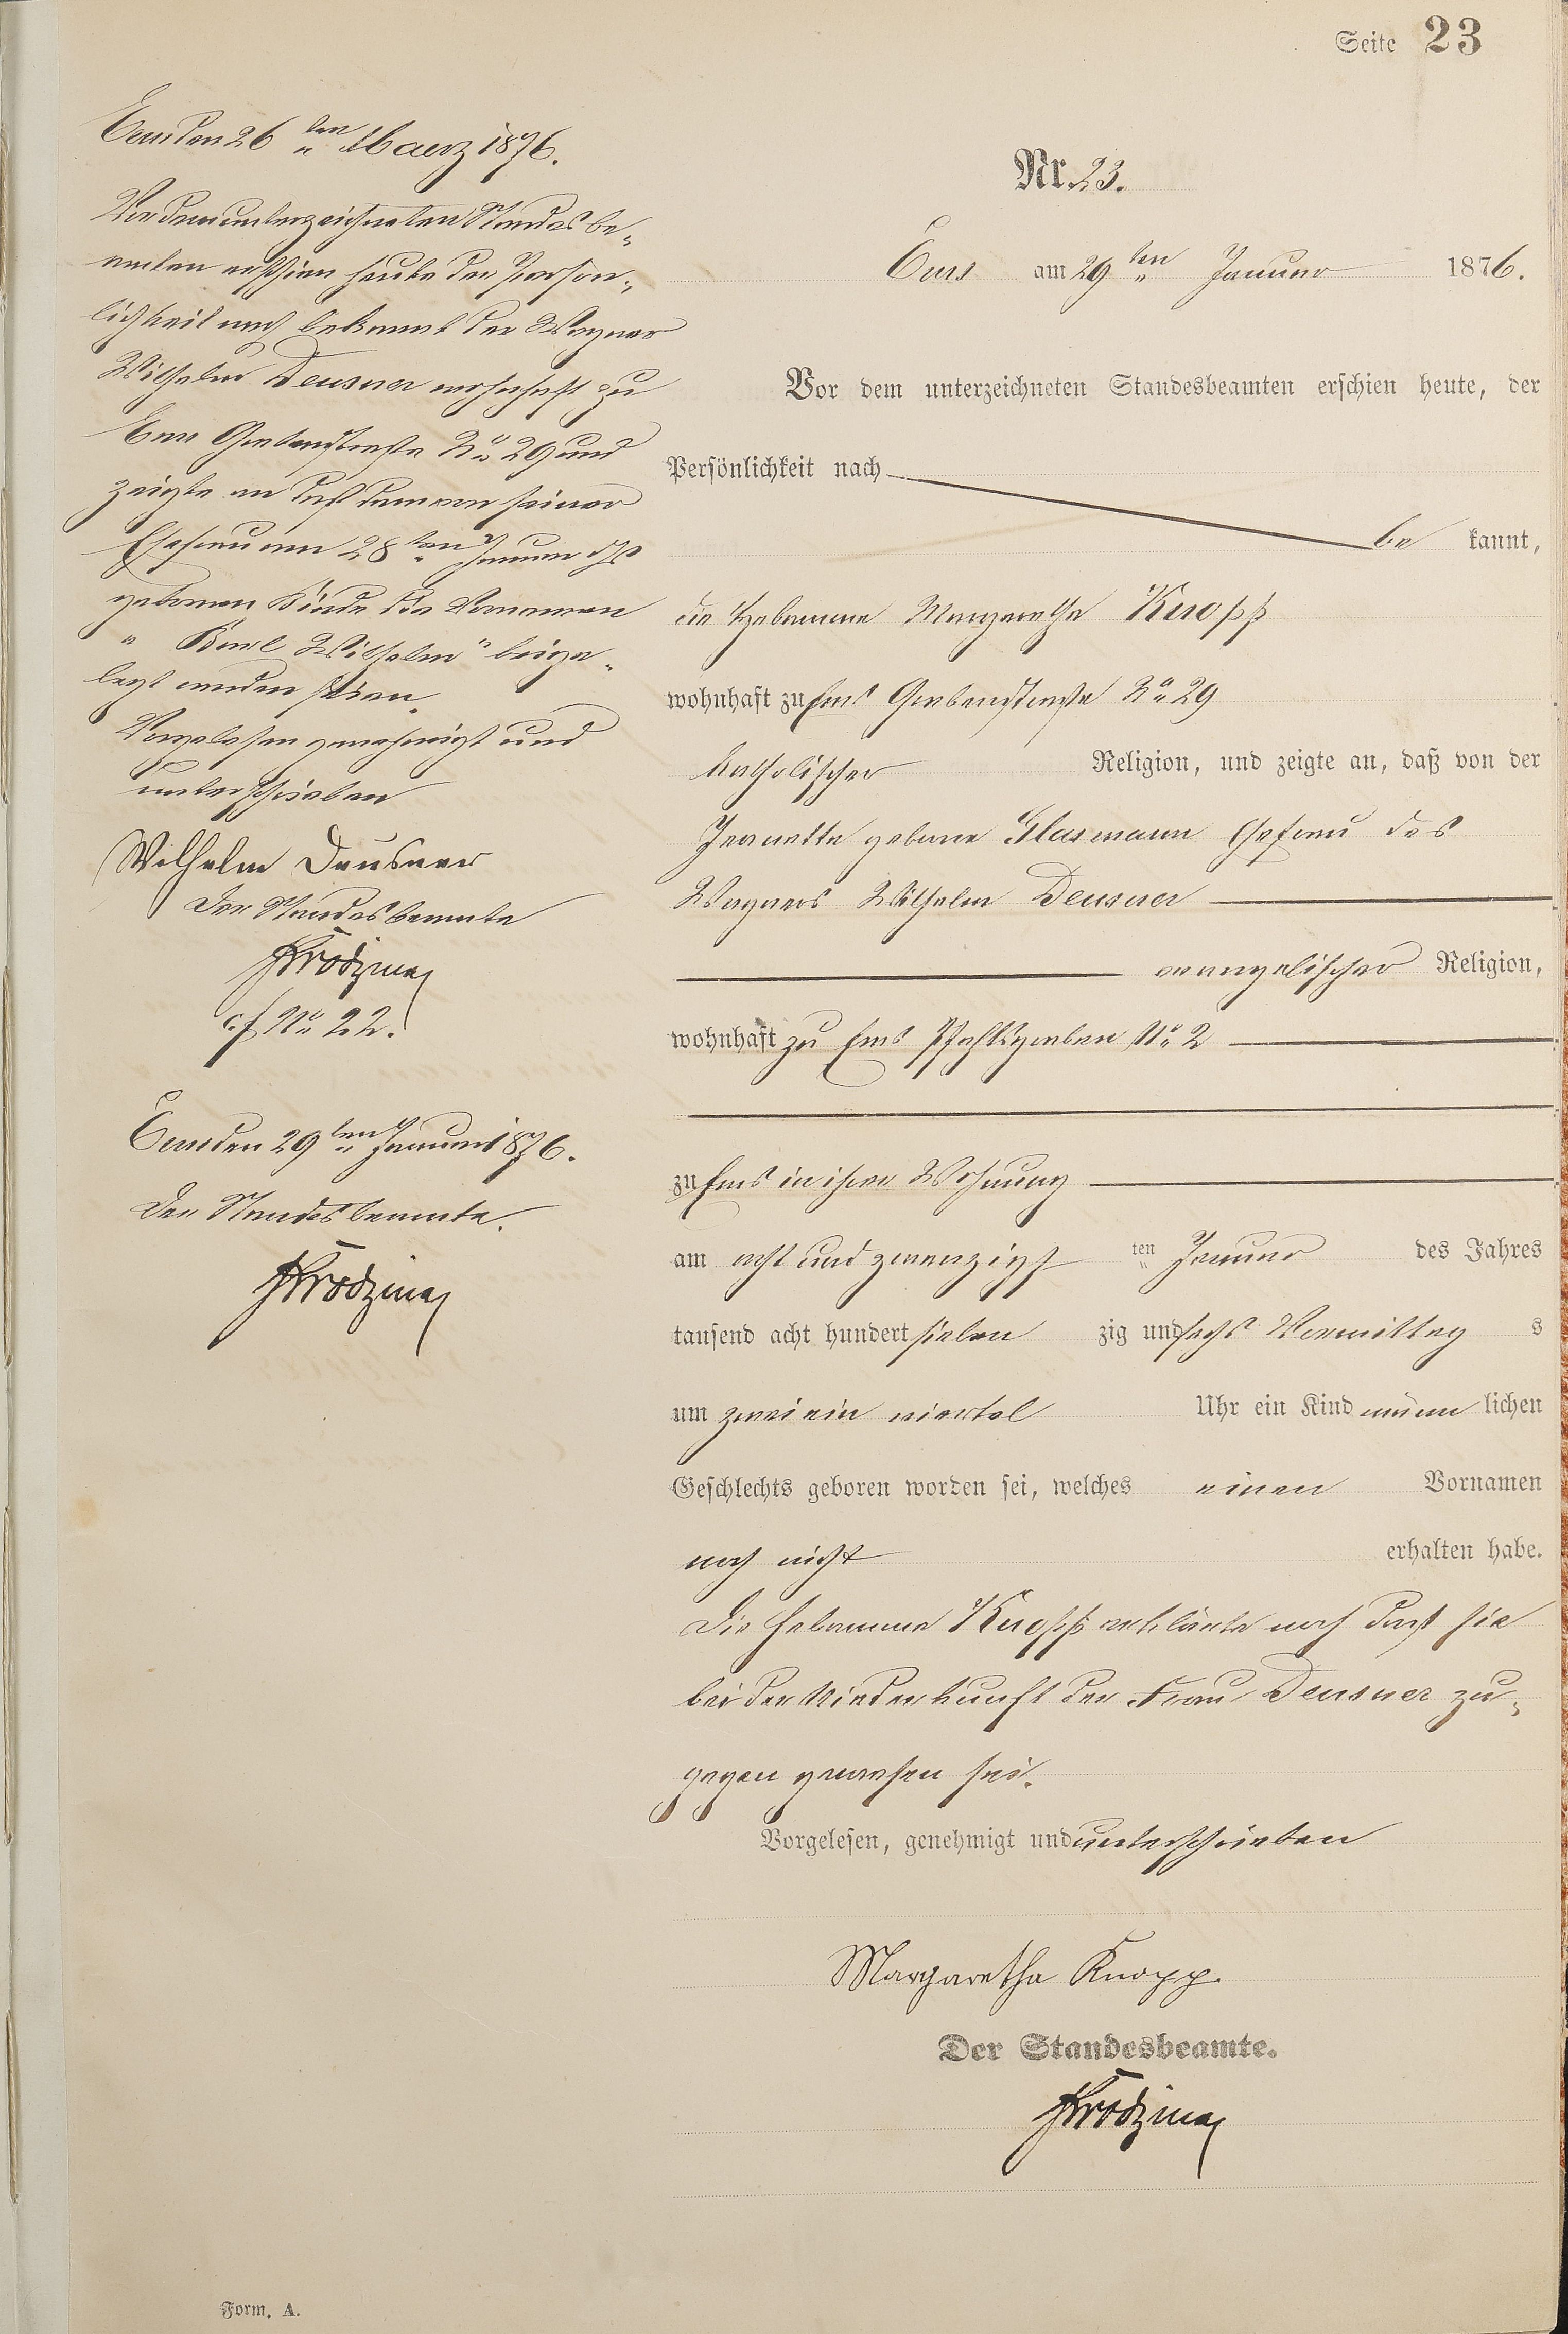 Seite 23
Ems den 26ten Maerz 1876.
Vor dem unterzeichneten Standesbe-
amten erschien heute der Person-
lichkeit nach bekannt der Wagner
Wilhelm Deusner wohnhaft zu
Ems Grabenstraße No 29 und
zeigte an daß dem von seiner
Ehefrau am 28ten Januar
geborenen Kinde die Vornamen
"Karl Wilhelm" beige-
legt worden seien.
Vorgelesen genehmigt und
unterschrieben
Wilhelm Deusner
Der Standesbeamte
cf No 22.
Ems den 29ten Januar 1876.
Der Standesbeamte.
Nr. 23.
Ems am 29ten Januar 1876.
Vor dem unterzeichneten Standesbeamten erschien heute, der
Persönlichkeit nach
be kannt,
die Hebamme Margarethe Knopp
wohnhaft zu Ems Grabenstraße No 29
katholischer Religion, und zeigte an, daß von der
Jeanette geborne Glasmann Ehefrau des
Wagners Wilhelm Deusner
evangelischer Religion,
wohnhaft zu Ems Pfahlgraben No 2
zu Ems in ihrer Wohnung
am acht und zwanzigsten ten Januar des Jahres
tausend acht hundert sieben zig und sechs Vormittag s
um zwei ein viertel Uhr ein Kind männ lichen
Geschlechts geboren worden sei, welches einen Vornamen
noch nicht erhalten habe.
Die Hebamme Knopp erklärte noch daß sie
bei der Niederkunft der Frau Deusner zu-
gegen gewesen sei.
Vorgelesen, genehmigt und unterschrieben
Margaretha Knopp.
Der Standesbeamte.
Form. A.